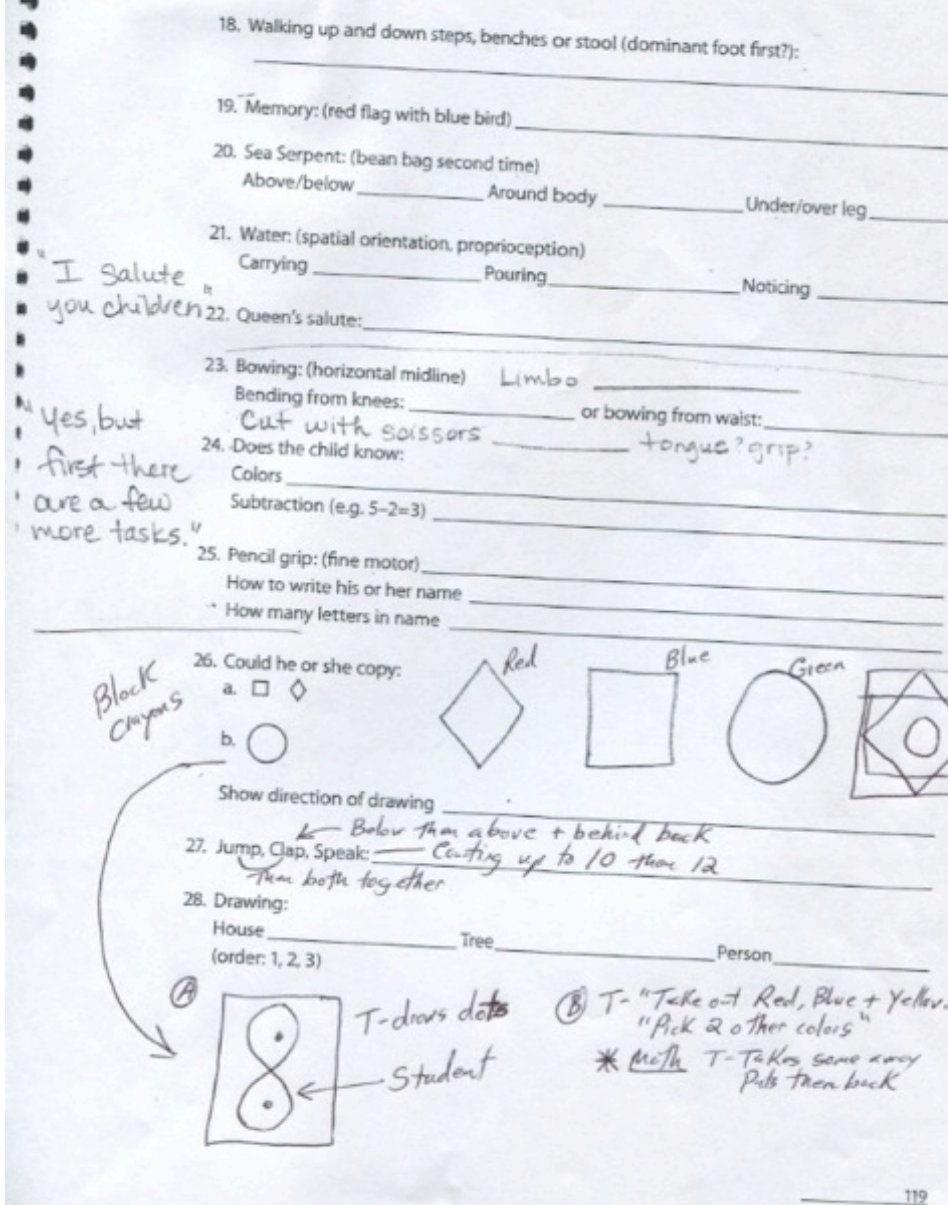 18. Walking up and down steps, benches or stool (dominant foot first?):
19. Memory: (red flag with blue bird)
20. Sea Serpent: (bean bag second time)
Above/below Around body Under/over leg
21. Water: (spatial orientation, proprioception)
Carrying Pouring Noticing
"I Salute
you children"
22. Queen's salute:
23. Bowing: (horizontal midline) Limbo
Bending from knees: or bowing from waist:
Cut with scissors tongue? grip?
"Yes, but
first there
are a few
more tasks."
24. Does the child know:
Colors
Subtraction (e.g. 5–2=3)
25. Pencil grip: (fine motor)
How to write his or her name
How many letters in name
Block
Crayons
26. Could he or she copy:
a.
b.
Red Blue Green
Show direction of drawing
Below then above + behind back
27. Jump, Clap, Speak: up to 10 then 12
Then both together
28. Drawing:
House Tree Person
(order: 1, 2, 3)
A
T-draws dots
Student
B T- "Take out Red, Blue + Yellow.
"Pick 2 other colors"
* Math T-Takes some away
Puts then back
119